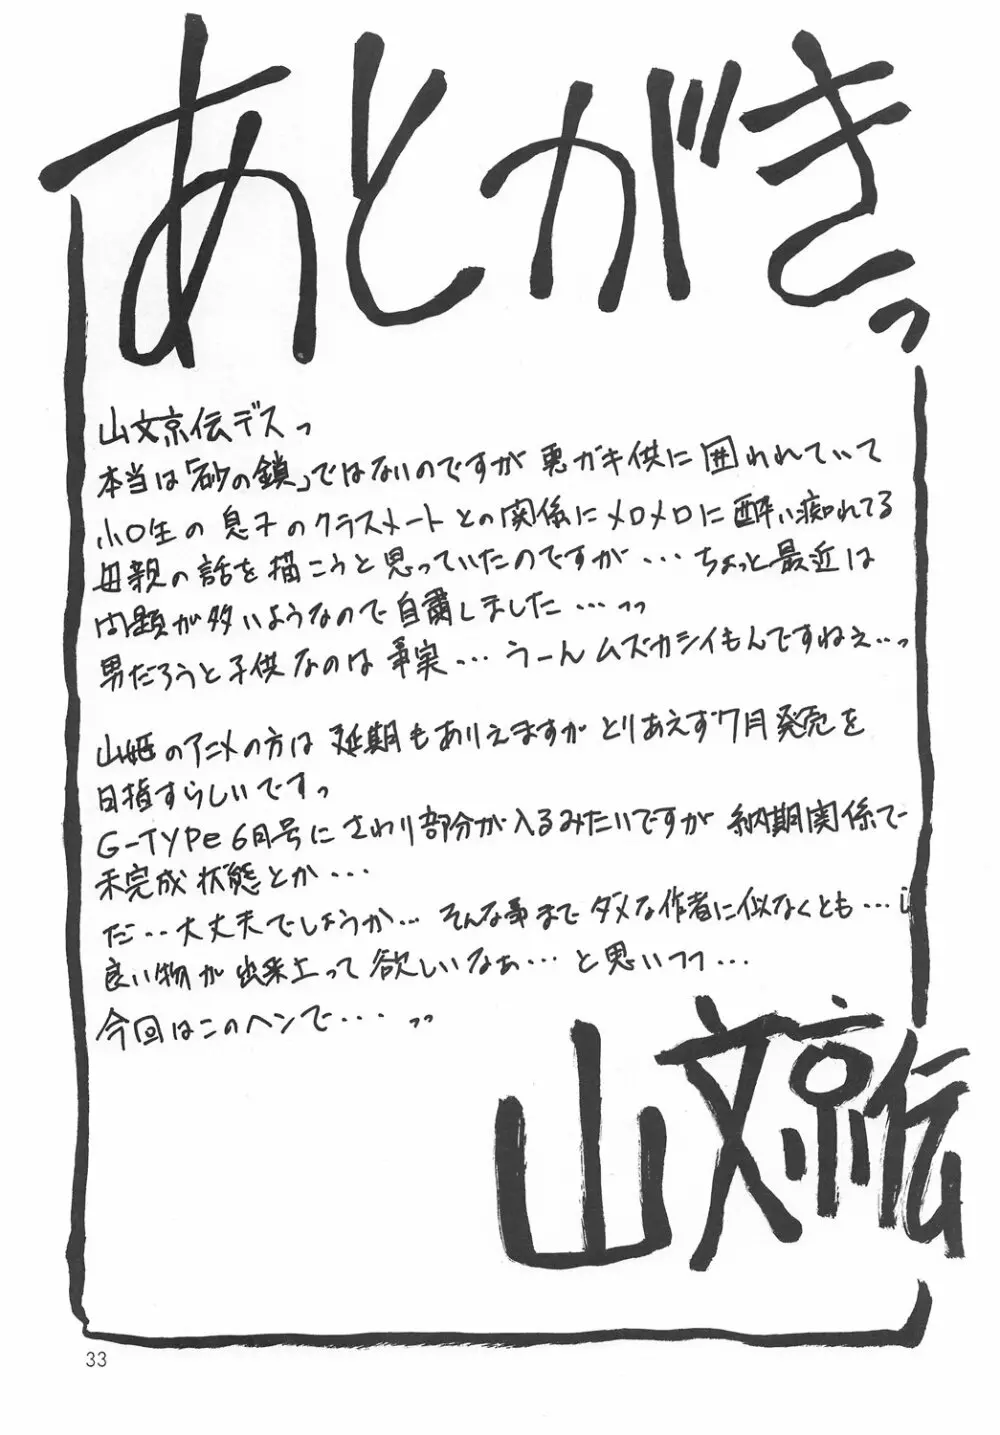 あとがきっ
山文京伝デスっ
本当は「砂の鎖」ではないのですが悪ガキ供に囲われていて
小〇生の息子のクラスメートとの関係にメロメロに酔い痴れてる
母親の話を描こうと思っていたのですが・・・ちょっと最近は
問題が多いようなので自粛しました・・・っっ
男だろうと子供なのは事実・・・うーんムズカシイもんですねぇ・・っ
山姫のアニメの方は延期もありえますがとりあえず7月発売を
目指すらしいですっ
G-TYPe 6月号にさわり部分が入るみたいですが納期関係で
未完成状態とか・・・
だ・・大丈夫でしょうか・・・そんな事までダメな作者に似なくとも・・・
良い物が出来上って欲しいなぁ・・・と思いつつ・・・
今回はこのヘンで・・・っっ
山文京伝
33